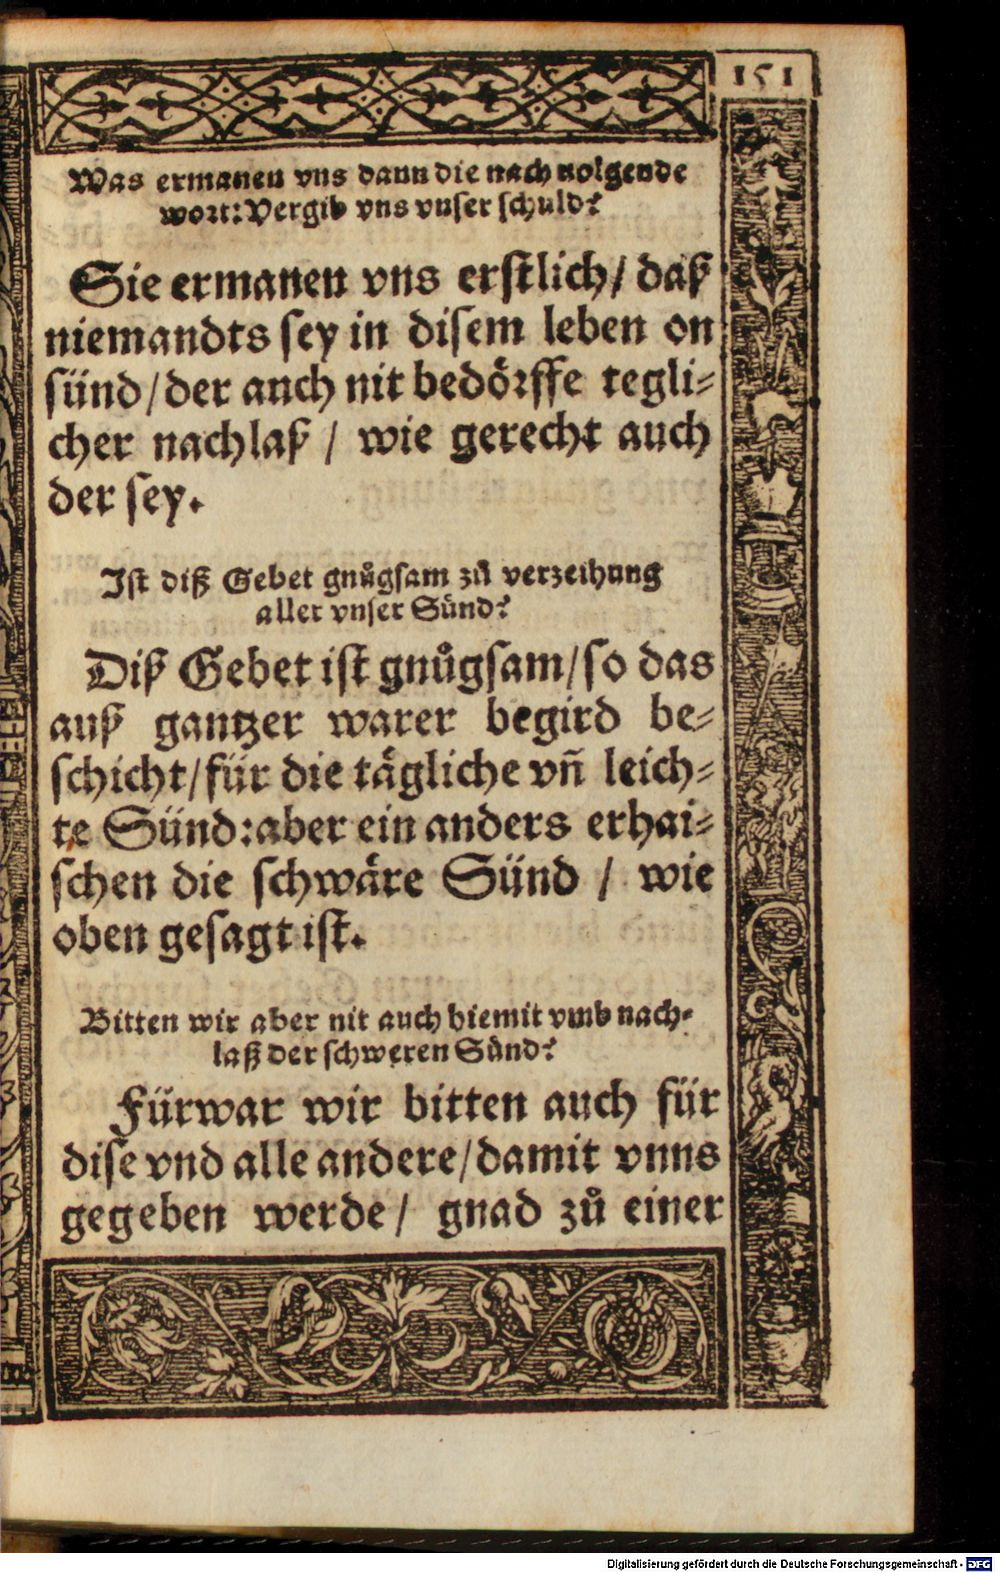 151
Was ermanen vns dann die nach volgende
wort: Vergib vns vnser schuld?
Sie ermanen vns erstlich / daß
niemandts sey in disem leben on
sünd / der auch nit bedörffe tegli⸗
cher nachlaß / wie gerecht auch
der sey.
Ist diß Gebet gnůgsam zů verzeihung
aller vnser Sünd?
Diß Gebet ist gnůgsam / so das
auß gantzer warer begird be⸗
schicht / für die tägliche vñ leich⸗
te Sünd: aber ein anders erhai⸗
schen die schwäre Sünd / wie
oben gesagt ist.
Bitten wir aber nit auch hiemit vmb nach⸗
laß der schweren Sünd?
Fürwar wir bitten auch für
dise vnd alle andere / damit vnns
gegeben werde / gnad zů einer
Digitalisierung gefördert durch die Deutsche Forschungsgemeinschaft - DFG